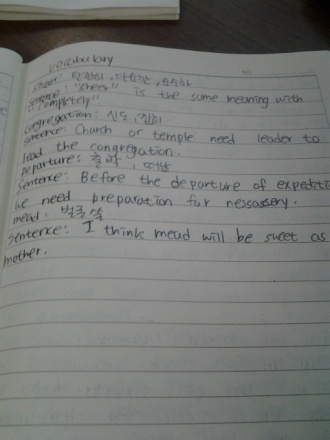 vocabulary
sheer: 완전히, 단순한, 순수한
sentence: "sheer" is the same meaning with
"completely"
congregation: 신도, 집회
sentence: Church or temple need leader to
lead the congregation.
Departure: 출발, 떠남
Sentence: Before the departure of expedition
we need preparation for nessasery.
mead: 벌꿀 술
Sentence: I think mead will be sweet as
mother.